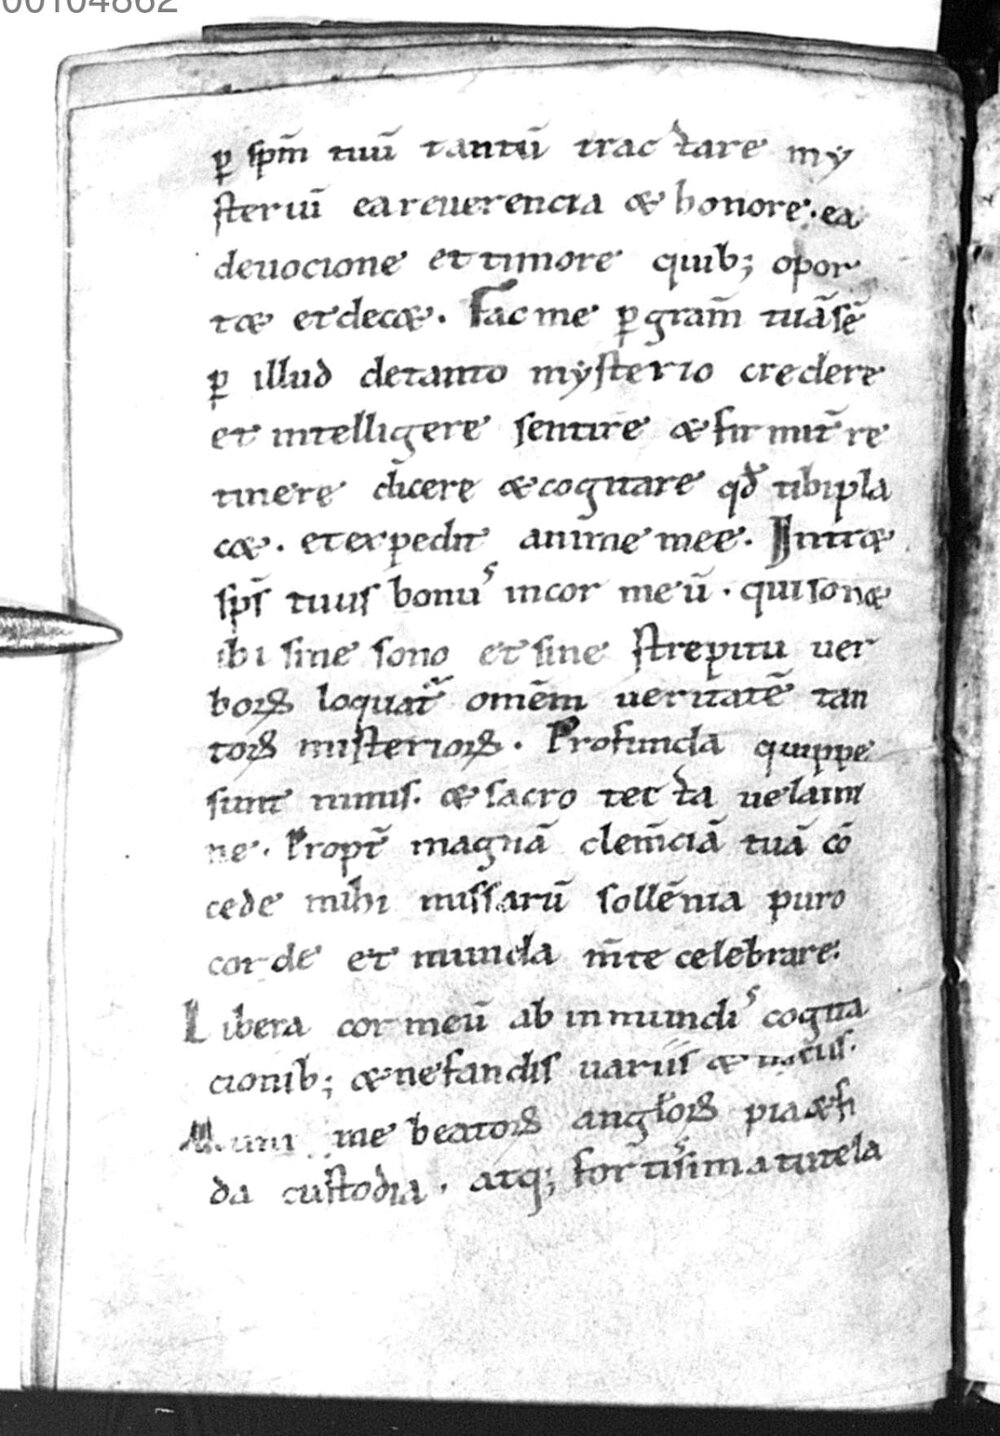 00104862
ꝑ spm̄ tuū tantū tractare my
steriū ea reuerencia & honore. ea
deuocione et timore quib; opor
t& et dec&. Fac me ꝑ gram̄ tuā sē
ꝑ illud de tanto mysterio credere
et intelligere sentire & firmit̄ re
tinere dicere & cogitare qđ tibi pla
c&. et expedit anime mee. Intr&
sps̄ tuus bonus in cor meū. qui son&
ibi sine sono et sine strepitu uer
boꝝ loquat̄ omēm ueritatē tan
toꝝ misterioꝝ. Profunda quippe
sunt nimis. & sacro tecta uelami
ne. Propt̄ magnā clem̄ciā tuā cō
cede mihi missarū sollēnia puro
corde et munda m̄te celebrare.
Libera cor meū ab inmundis cogita
cionib; & nefandis uariis &
Muni me beatoꝝ angłoꝝ pia & fi
da custodia. atq; fortisima tutela